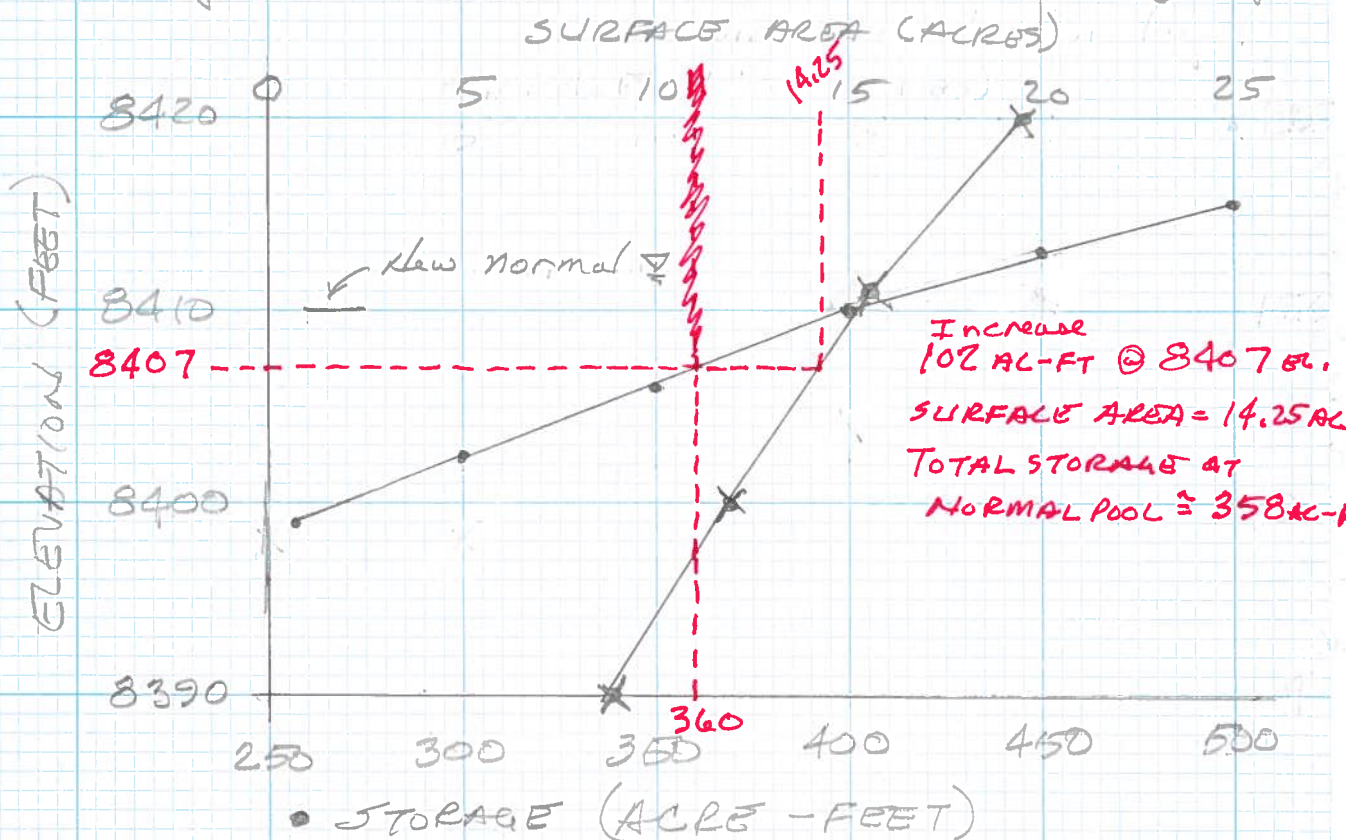 SURFACE AREA (ACRES)
0 5 10 14.25 15 20 25
8420
ELEVATION (FEET)
New normal
8410
8407
Increase
102 AC-FT @ 8407 EL.
SURFACE AREA = 14.25 AC
TOTAL STORAGE AT
NORMAL POOL ≅ 358 AC-F
8400
8390
360
250 300 350 400 450 500
• STORAGE (ACRE-FEET)